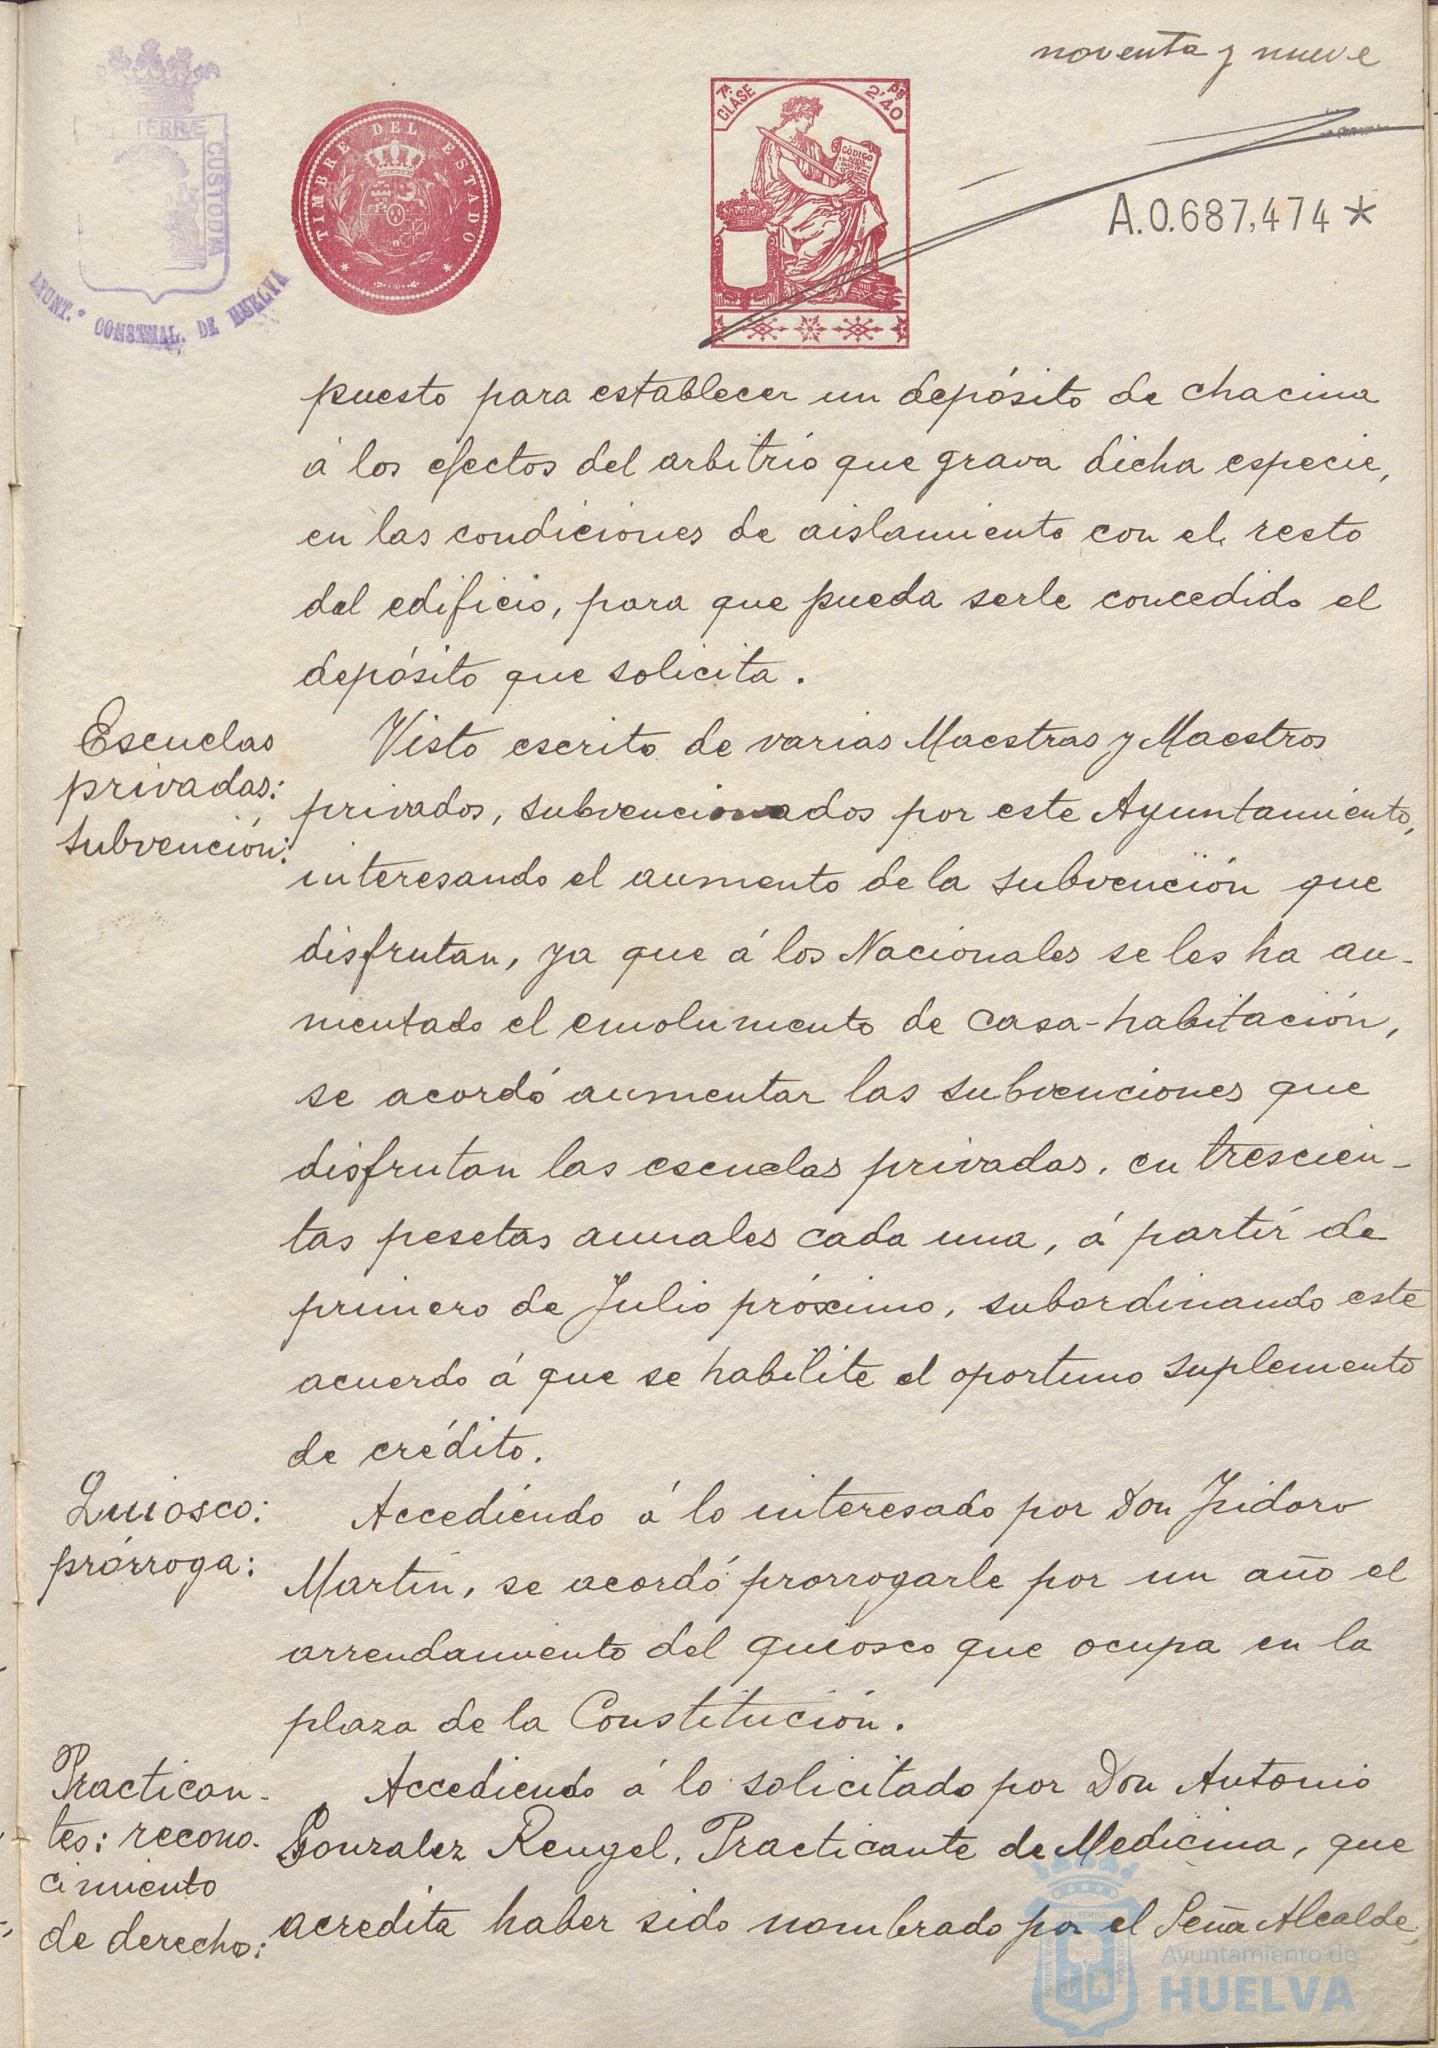 noventa y nueve
TERRÆ
CUSTODIA
AYUNT.º CONSTNAL. DE HUELVA
TIMBRE DEL ESTADO
7ª CLASE
2'40 Ps
CÓDIGO
A.0.687,474*
puesto para establecer un depósito de chacina
á los efectos del arbitrio que grava dicha especie,
en las condiciones de aislamiento con el resto
del edificio, para que pueda serle concedido el
depósito que solicita.
Escuelas
privadas:
subvención:
Visto escrito de varias Maestras y Maestros
privados, subvencionados por este Ayuntamiento,
interesando el aumento de la subvención que
disfrutan, ya que á los Nacionales se les ha au-
mentado el emolumento de casa-habitación,
se acordó aumentar las subvenciones que
disfrutan las escuelas privadas, en trescien-
tas pesetas anuales cada una, á partir de
primero de Julio próximo, subordinando este
acuerdo á que se habilite el oportuno suplemento
de crédito.
Quiosco:
prórroga:
Accediendo á lo interesado por Don Isidoro
Martín, se acordó prorrogarle por un año el
arrendamiento del quiosco que ocupa en la
plaza de la Constitución.
Practican-
tes: recono-
cimiento
de derecho:
Accediendo á lo solicitado por Don Antonio
Gonzalez Rengel, Practicante de Medicina, que
acredita haber sido nombrado por el Señor Alcalde,
Ayuntamiento de
HUELVA